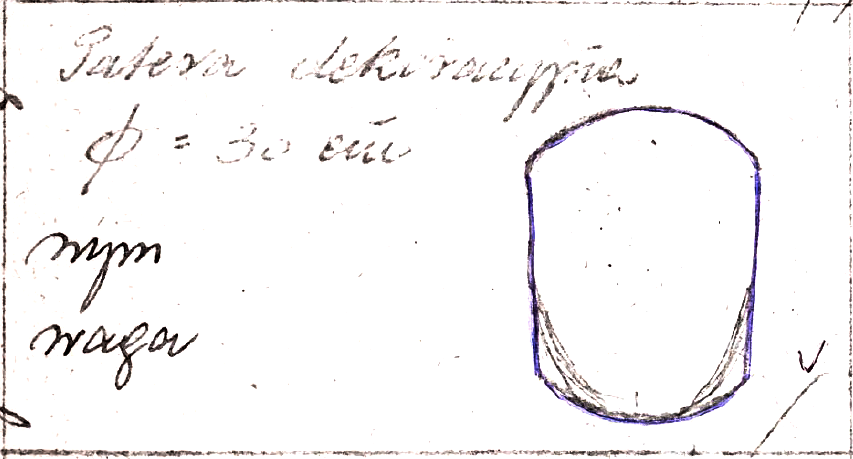 Patera dekoracyjna
ϕ = 30 cm
wym
waga